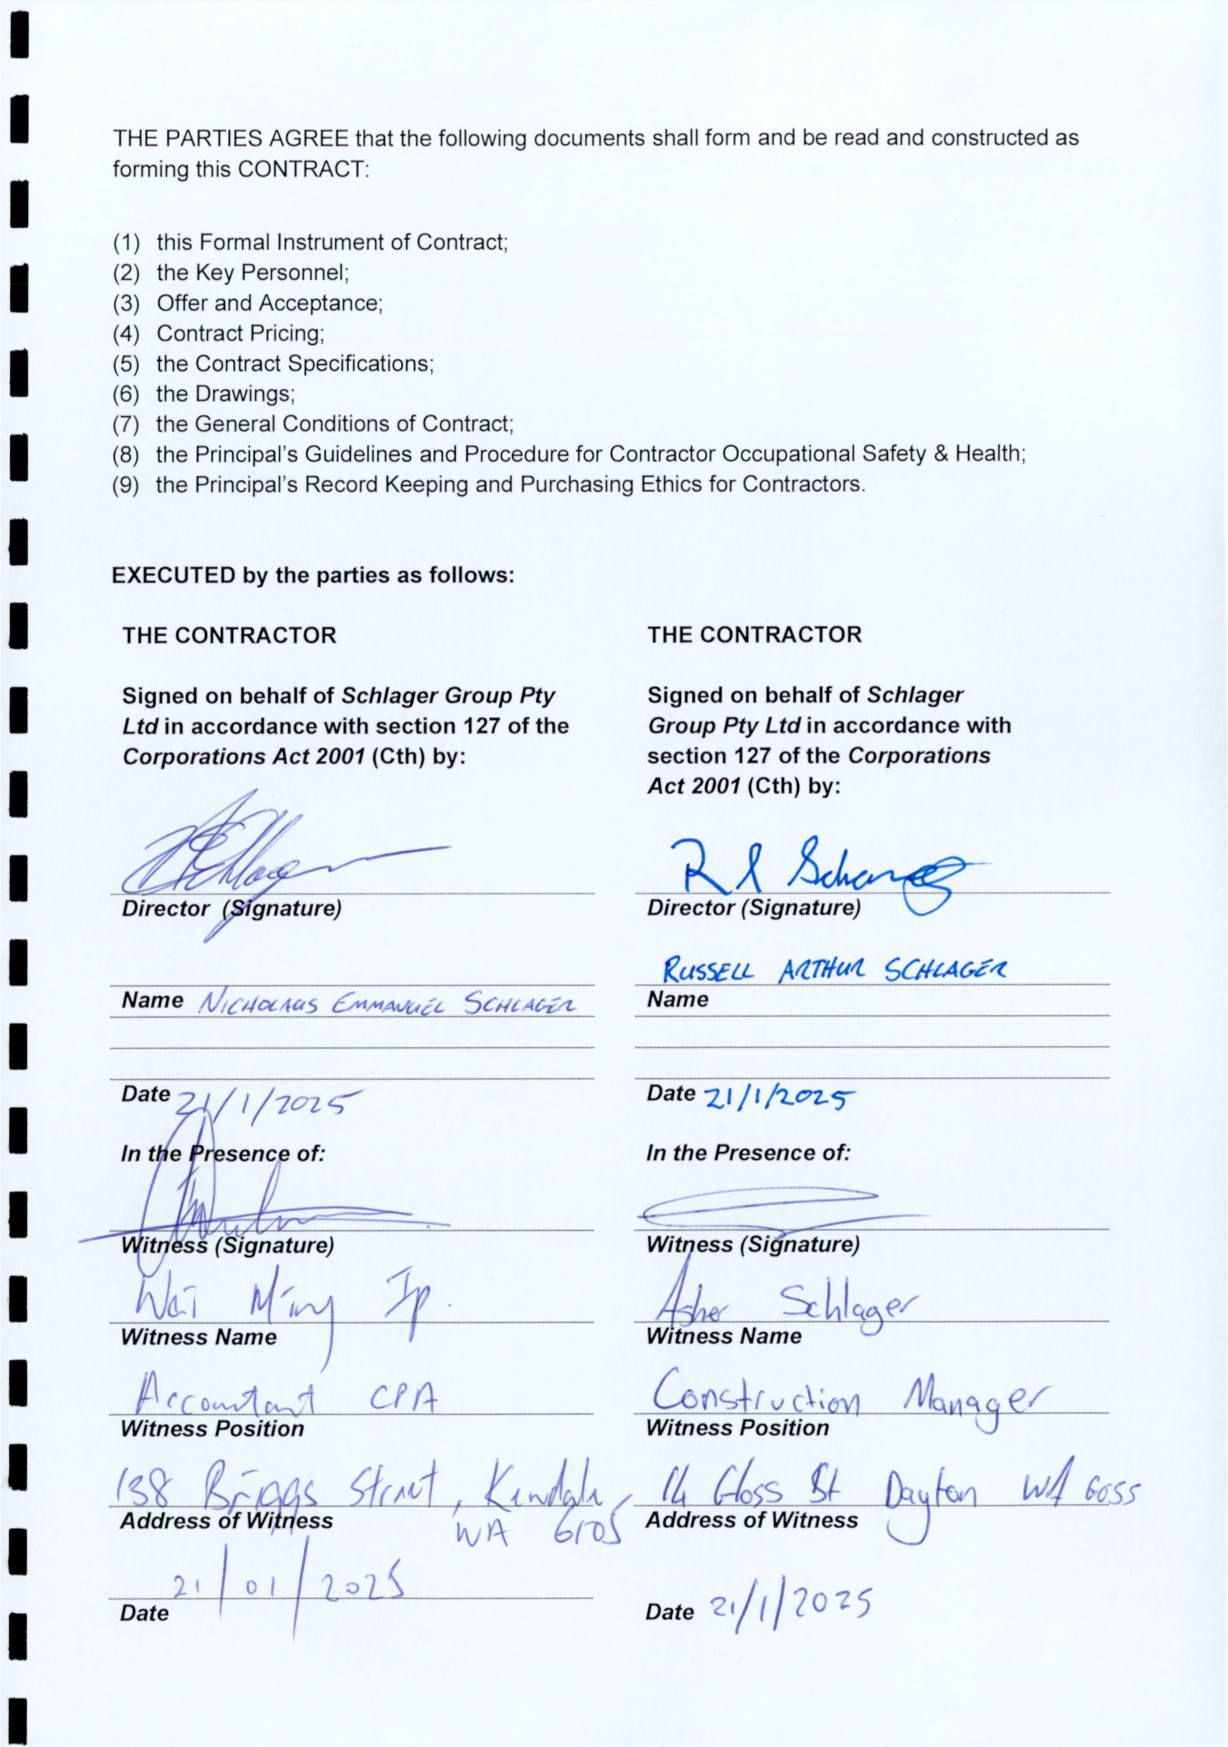 THE PARTIES AGREE that the following documents shall form and be read and constructed as
forming this CONTRACT:
(1) this Formal Instrument of Contract;
(2) the Key Personnel;
(3) Offer and Acceptance;
(4) Contract Pricing;
(5) the Contract Specifications;
(6) the Drawings;
(7) the General Conditions of Contract;
(8) the Principal's Guidelines and Procedure for Contractor Occupational Safety & Health;
(9) the Principal's Record Keeping and Purchasing Ethics for Contractors.
EXECUTED by the parties as follows:
THE CONTRACTOR
Signed on behalf of Schlager Group Pty
Ltd in accordance with section 127 of the
Corporations Act 2001 (Cth) by:
Director (Signature)
Name NICHOLAUS EMMANUEL SCHLAGER
Date 21/1/2025
In the Presence of:
Witness (Signature)
Wai Ming Ip.
Witness Name
Accountant CPA
Witness Position
138 Briggs Street,
Address of Witness
WA 6105
21/01/2025
Date
THE CONTRACTOR
Signed on behalf of Schlager
Group Pty Ltd in accordance with
section 127 of the Corporations
Act 2001 (Cth) by:
Director (Signature)
RUSSELL ARTHUR SCHLAGER
Name
Date 21/1/2025
In the Presence of:
Witness (Signature)
Asher Schlager
Witness Name
Construction Manager
Witness Position
14 St Dayton WA 6055
Address of Witness
Date 21/1/2025